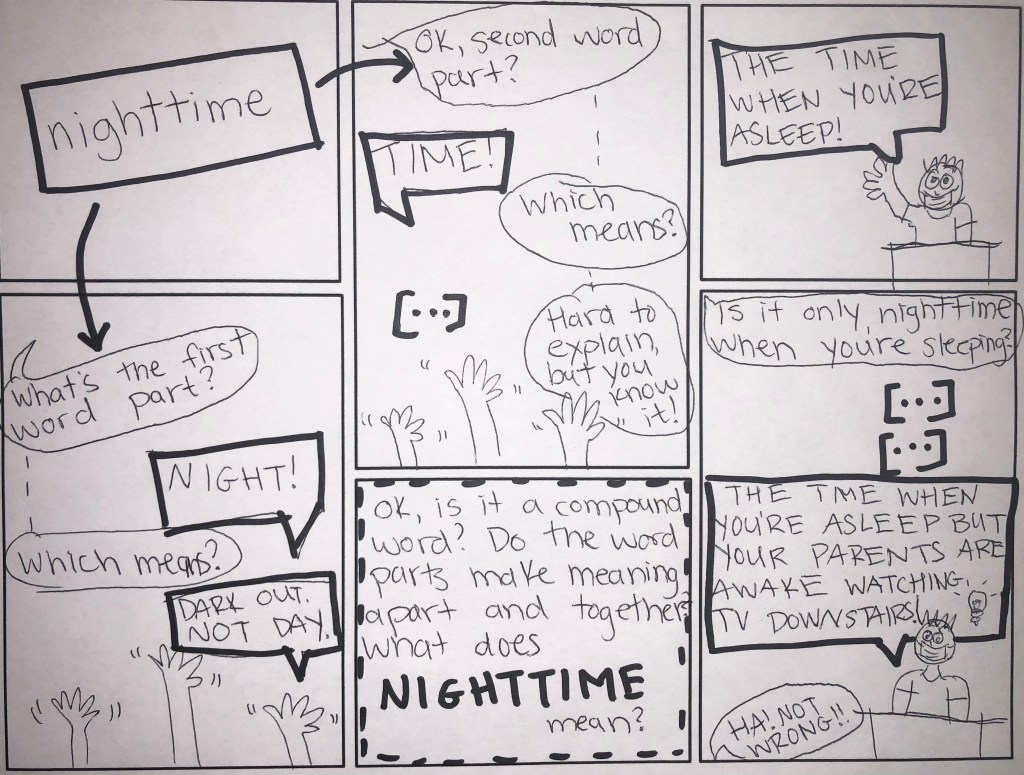 nighttime
What's the first
word part?
NIGHT!
Which means?
DARK OUT.
NOT DAY.
OK, second word
part?
TIME!
Which
means?
[...]
Hard to
explain,
but you
know
it!
OK, is it a compound
word? Do the word
parts make meaning
apart and together?
What does
NIGHTTIME
mean?
THE TIME
WHEN YOU'RE
ASLEEP!
Is it only nighttime
when you're sleeping?
[...]
[...]
THE TIME WHEN
YOU'RE ASLEEP BUT
YOUR PARENTS ARE
AWAKE WATCHING
TV DOWNSTAIRS!
HA! NOT
WRONG!!